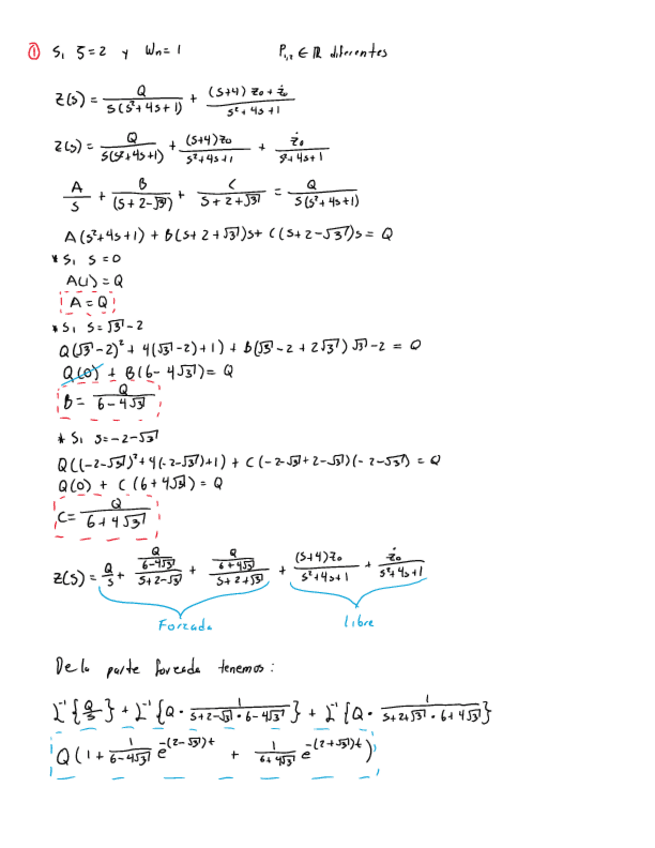 ① Si ζ=2 y Wn=1 P₁,₂ ∈ ℝ diferentes
Z(s) = Q/(s(s²+4s+1)) + ((s+4)z₀+ż₀)/(s²+4s+1)
Z(s) = Q/(s(s²+4s+1)) + ((s+4)z₀)/(s²+4s+1) + ż₀/(s²+4s+1)
A/s + B/(s+2-√3) + C/(s+2+√3) = Q/(s(s²+4s+1))
A(s²+4s+1) + B(s+2+√3)s + C(s+2-√3)s = Q
* Si s=0
A(1) = Q
A = Q
* Si s=√3-2
Q(√3-2)²+4(√3-2)+1) + B(√3-2+2√3)√3-2 = Q
Q(0) + B(6-4√3) = Q
B = Q/(6-4√3)
* Si s=-2-√3
Q((-2-√3)²+4(-2-√3)+1) + C(-2-√3+2-√3)(-2-√3) = Q
Q(0) + C(6+4√3) = Q
C = Q/(6+4√3)
Z(s) = Q/s + (Q/(6-4√3))/(s+2-√3) + (Q/(6+4√3))/(s+2+√3) + ((s+4)z₀)/(s²+4s+1) + ż₀/(s²+4s+1)
Forzada libre
De la parte forzada tenemos:
ℒ⁻¹{Q/s} + ℒ⁻¹{Q · 1/(s+2-√3 · 6-4√3)} + ℒ⁻¹{Q · 1/(s+2+√3 · 6+4√3)}
Q(1 + 1/(6-4√3) e^(-(2-√3)t) + 1/(6+4√3) e^(-(2+√3)t))